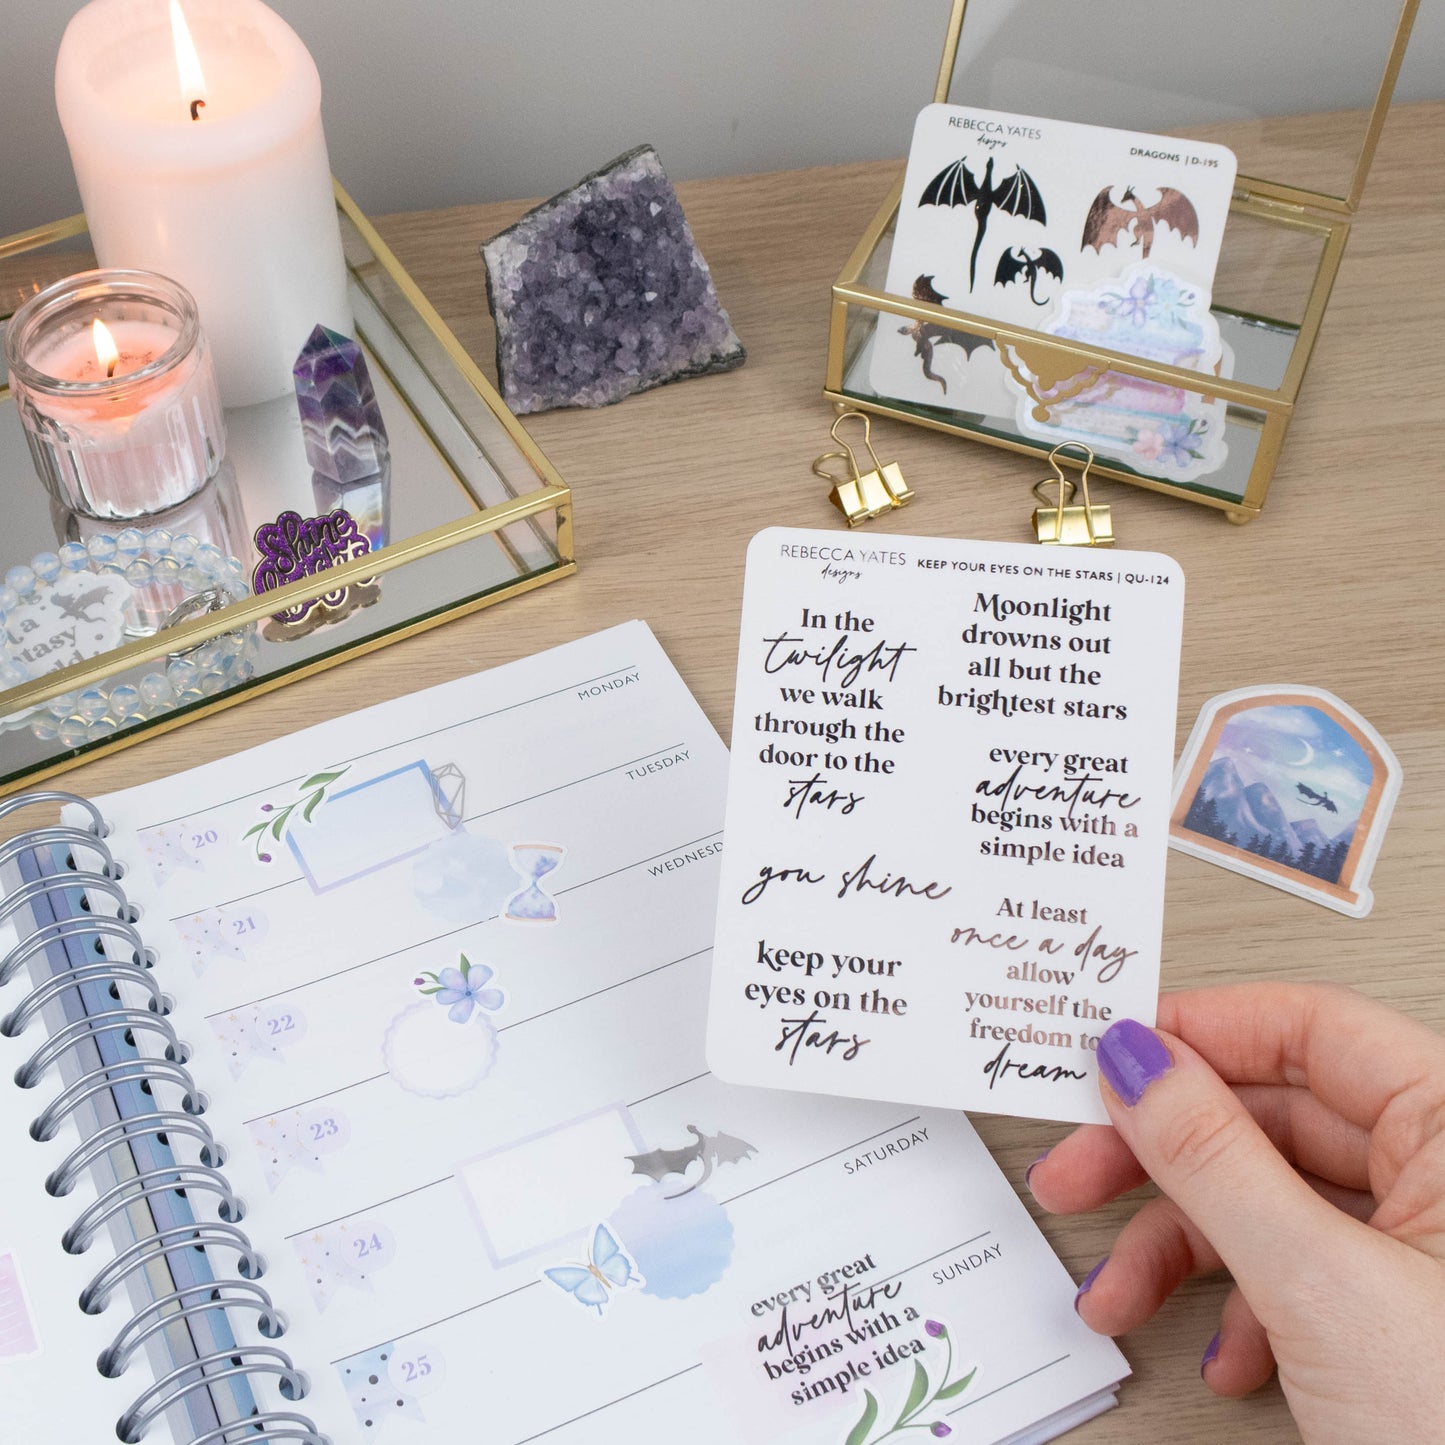 REBECCA YATES
designs
DRAGONS | D-195
Shine
Bright
a
REBECCA YATES
designs
KEEP YOUR EYES ON THE STARS | QU-124
In the
twilight
we walk
through the
door to the
stars
you shine
keep your
eyes on the
stars
Moonlight
drowns out
all but the
brightest stars
every great
adventure
begins with a
simple idea
At least
once a day
allow
yourself the
freedom to
dream
MONDAY
20
TUESDAY
21
22
23
SATURDAY
24
SUNDAY
25
every great
adventure
begins with a
simple idea